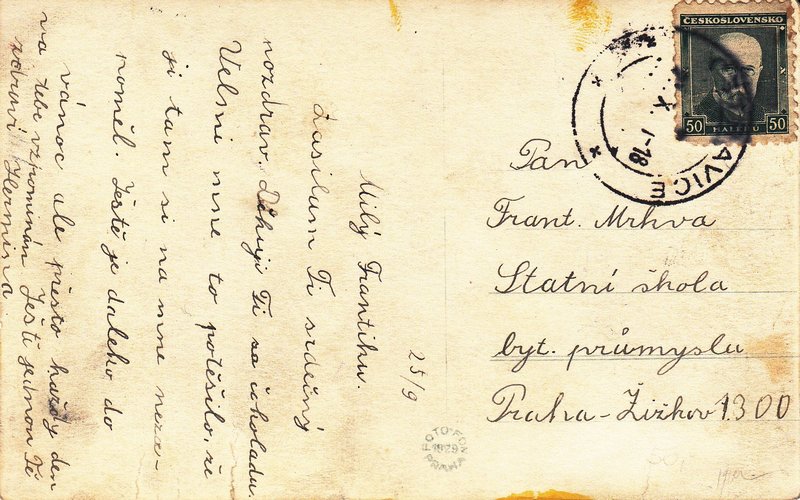 25/9
Milý Frantíku.
Zasílam Ti srdečný
pozdrav. Děkuji Ti za čokoladu.
Velmi mne to potěšilo, že
ji tam si na mne neza-
poměl. Ještě je daleko do
vánoc ale přesto každý den
na tebe vzpomínám Ještě jednou Tě
zdraví Hermina.
ČESKOSLOVENSKO
50 HALÉŘŮ 50
AVICE
X
-18
Pan
Frant. Mrhva
Statní škola
byt. průmyslu
Praha-Žižkov 1300
FOTO-FON
1929
PRAHA